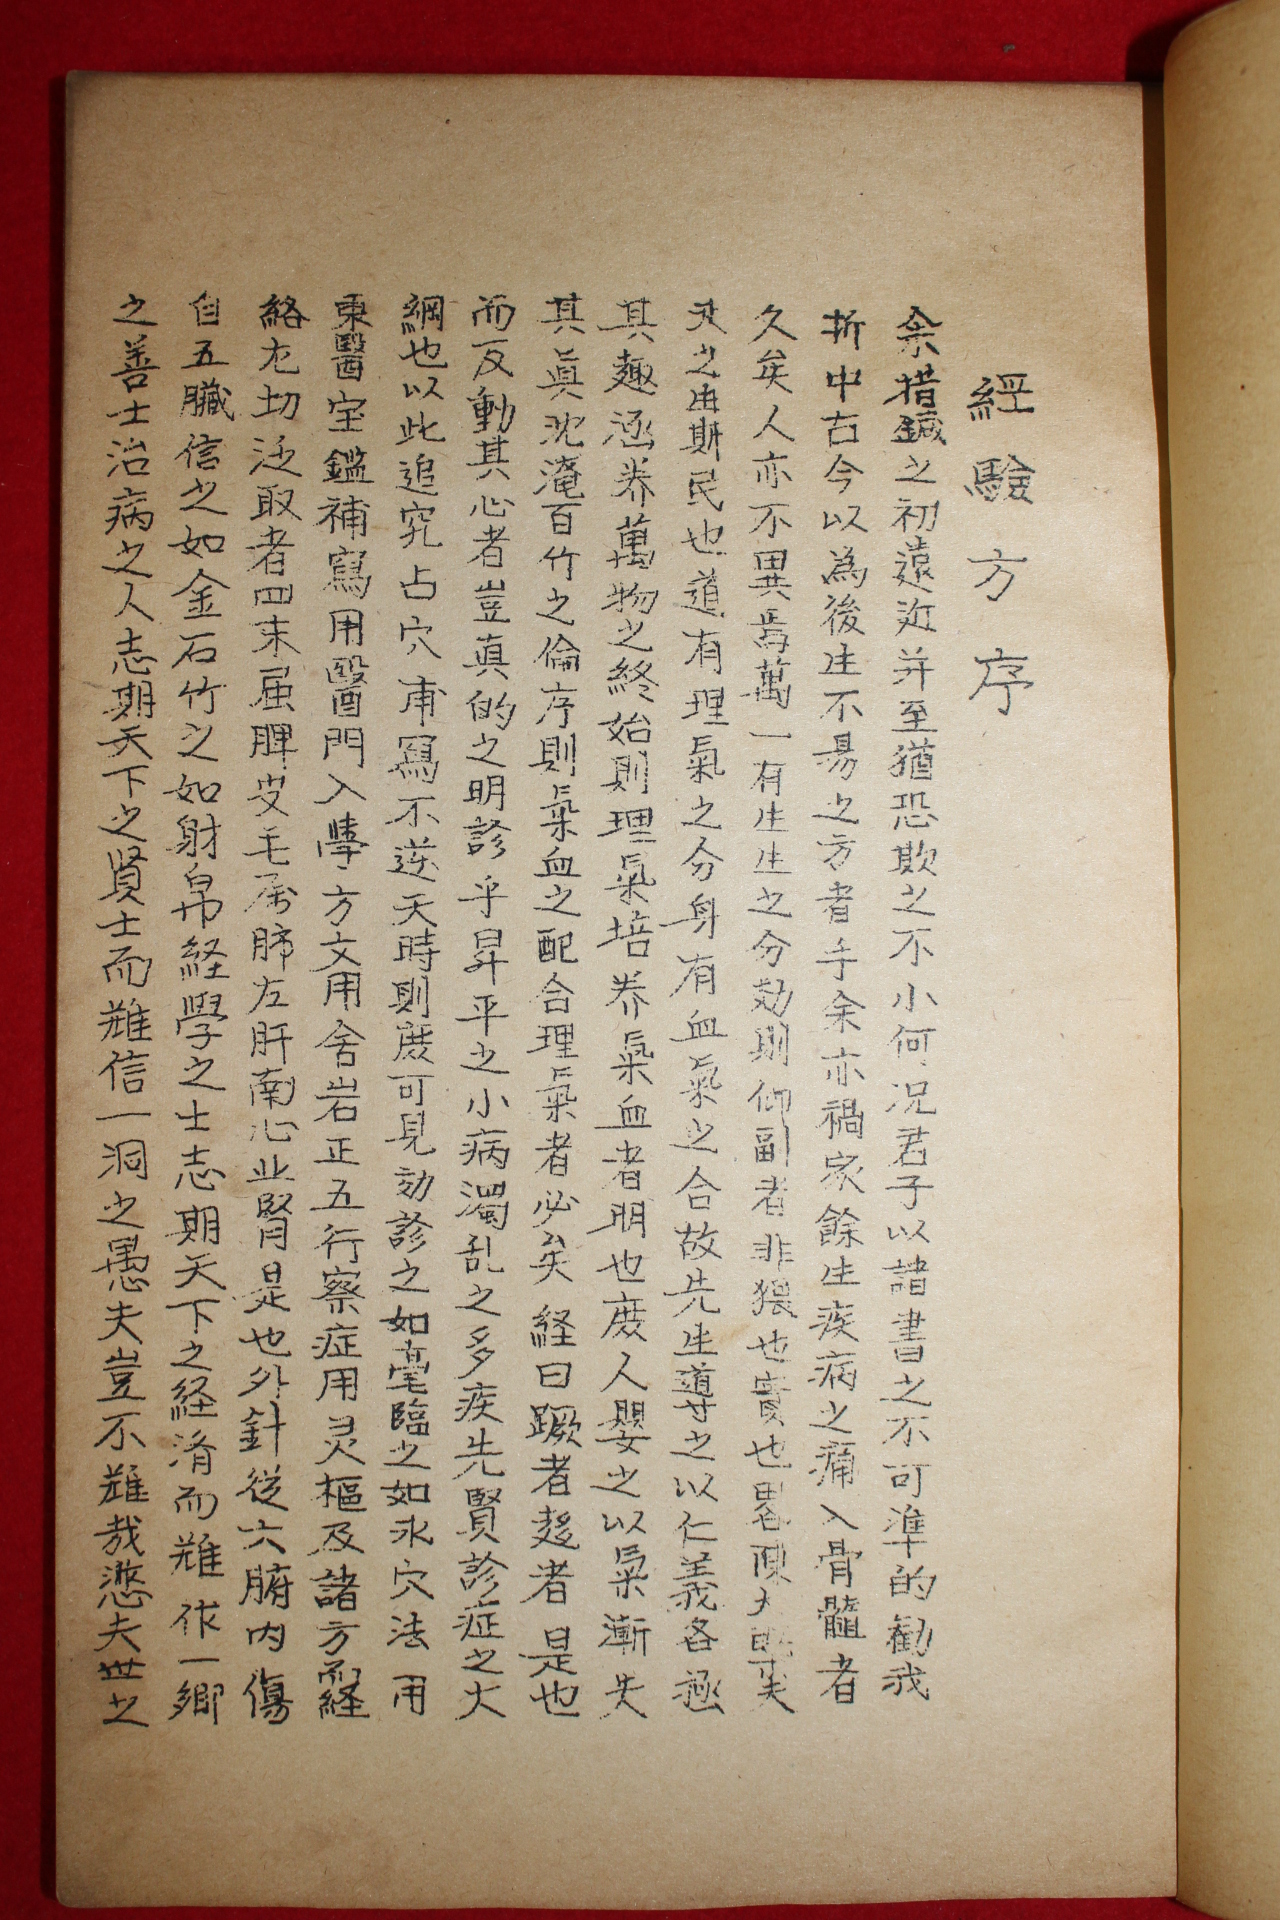 經驗方序
余措鍼之初遠近并至猶恐欺之不小何況君子以諸書之不可準的勸我
折中古今以為後生不易之方者乎余亦禍家餘生疾病之痛入骨髓者
久矣人亦不異焉萬一有生生之分効則仰副者非猥也實也畧陳大
之由斯民也道有理氣之分身有血氣之合故先生導之以仁義各極
其趣涵养萬物之終始則理氣培养氣血者明也庻人嬰之以氣漸失
其眞沈淹百竹之倫序則氣血之配合理氣者必矣経曰蹶者趍者是也
而反動其心者豈真的之明診乎昇平之小病濁乱之多疾先賢診症之大
綱也以此追究占穴甫冩不逆天時則庻可見効診之如毫臨之如氷穴法用
東醫宝鑑補寫用醫門入學方文用舍岩正五行察症用灵樞及諸方而経
絡尤切泛取者四末屈脾皮毛屬肺左肝南心北腎是也外針從六腑内傷
自五臓信之如金石竹之如射帛経學之士志期天下之経済而難作一鄉
之善士治病之人志期天下之賢士而難信一洞之愚夫豈不難哉悲夫世之